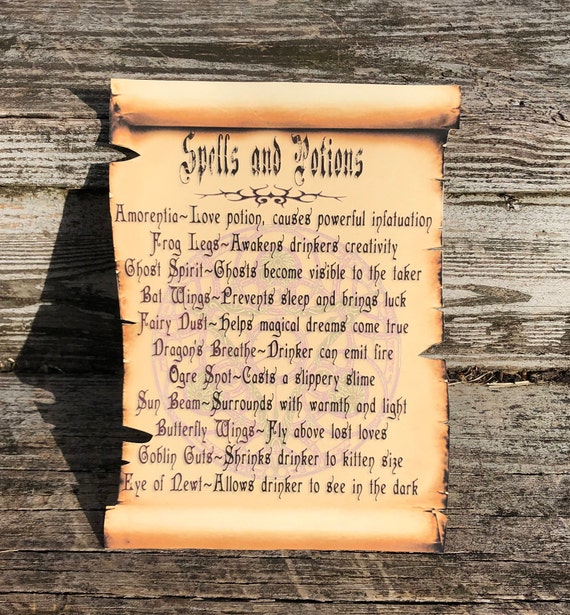 Spells and Potions
Amorentia~Love potion, causes powerful infatuation
Frog Legs~Awakens drinkers creativity
Ghost Spirit~Ghosts become visible to the taker
Bat Wings~Prevents sleep and brings luck
Fairy Dust~Helps magical dreams come true
Dragon's Breathe~Drinker can emit fire
Ogre Snot~Casts a slippery slime
Sun Beam~Surrounds with warmth and light
Butterfly Wings~Fly above lost loves
Goblin Guts~Shrinks drinker to kitten size
Eye of Newt~Allows drinker to see in the dark